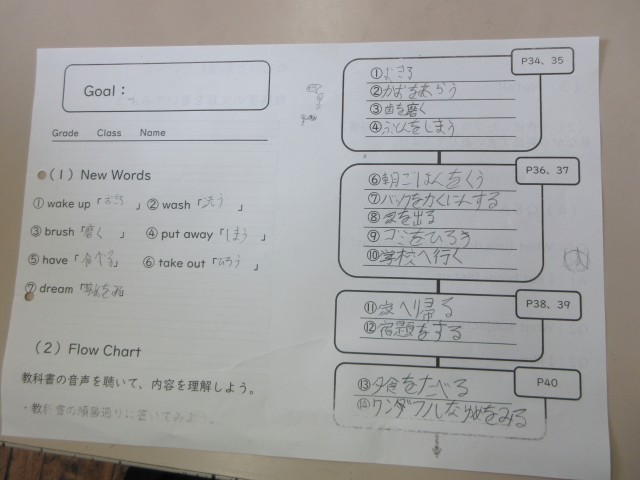 Goal：
Grade Class Name
(1) New Words
① wake up「おきる」② wash「洗う」
③ brush「磨く」 ④ put away「しまう」
⑤ have「食べる」 ⑥ take out「ひろう」
⑦ dream「
(2) Flow Chart
教科書の音声を聴いて、内容を理解しよう。
・教科書の順番通りに書いてみよう。
P34、35
①おきる
②かおをあらう
③歯を磨く
④ふとんをしまう
P36、37
⑥朝ごはんをくう
⑦バックをかくにんする
⑧家を出る
⑨ゴミをひろう
⑩学校へ行く
P38、39
⑪家へ帰る
⑫宿題をする
P40
⑬夕食をたべる
⑭ワンダフルなゆめをみる